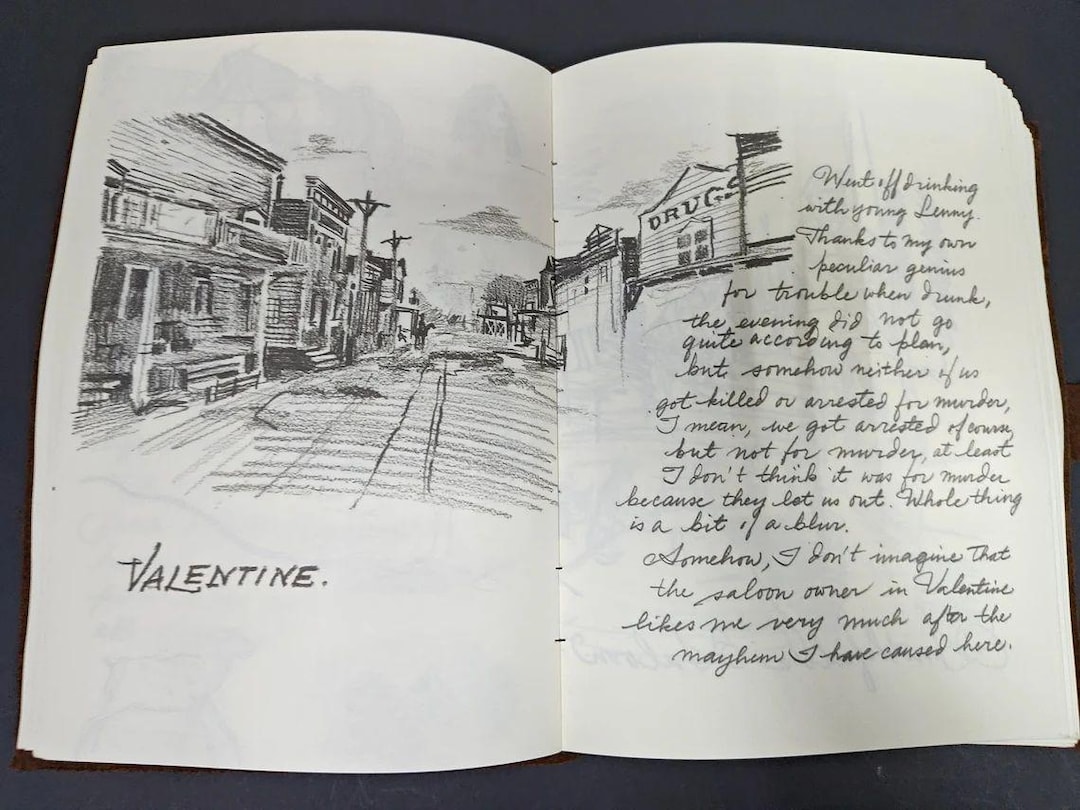 VALENTINE.
DRUGS
Went off drinking
with young Lenny.
Thanks to my own
peculiar genius
for trouble when drunk,
the evening did not go
quite according to plan,
but somehow neither of us
got killed or arrested for murder,
I mean, we got arrested of course,
but not for murder, at least
I don't think it was for murder
because they let us out. Whole thing
is a bit of a blur.
Somehow, I don't imagine that
the saloon owner in Valentine
likes me very much after the
mayhem I have caused here.